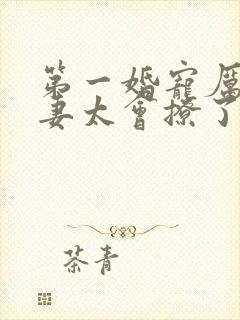 第一婚宠厲
妻太會撩了
茶青